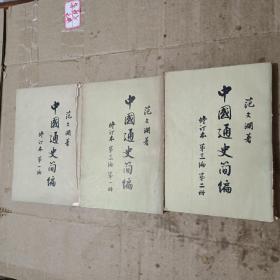 范文澜著
中國通史簡編
修订本 第一编
范文澜著
中國通史簡編
修订本 第三编 第一册
范文澜著
中國通史簡編
修订本 第三编 第二册